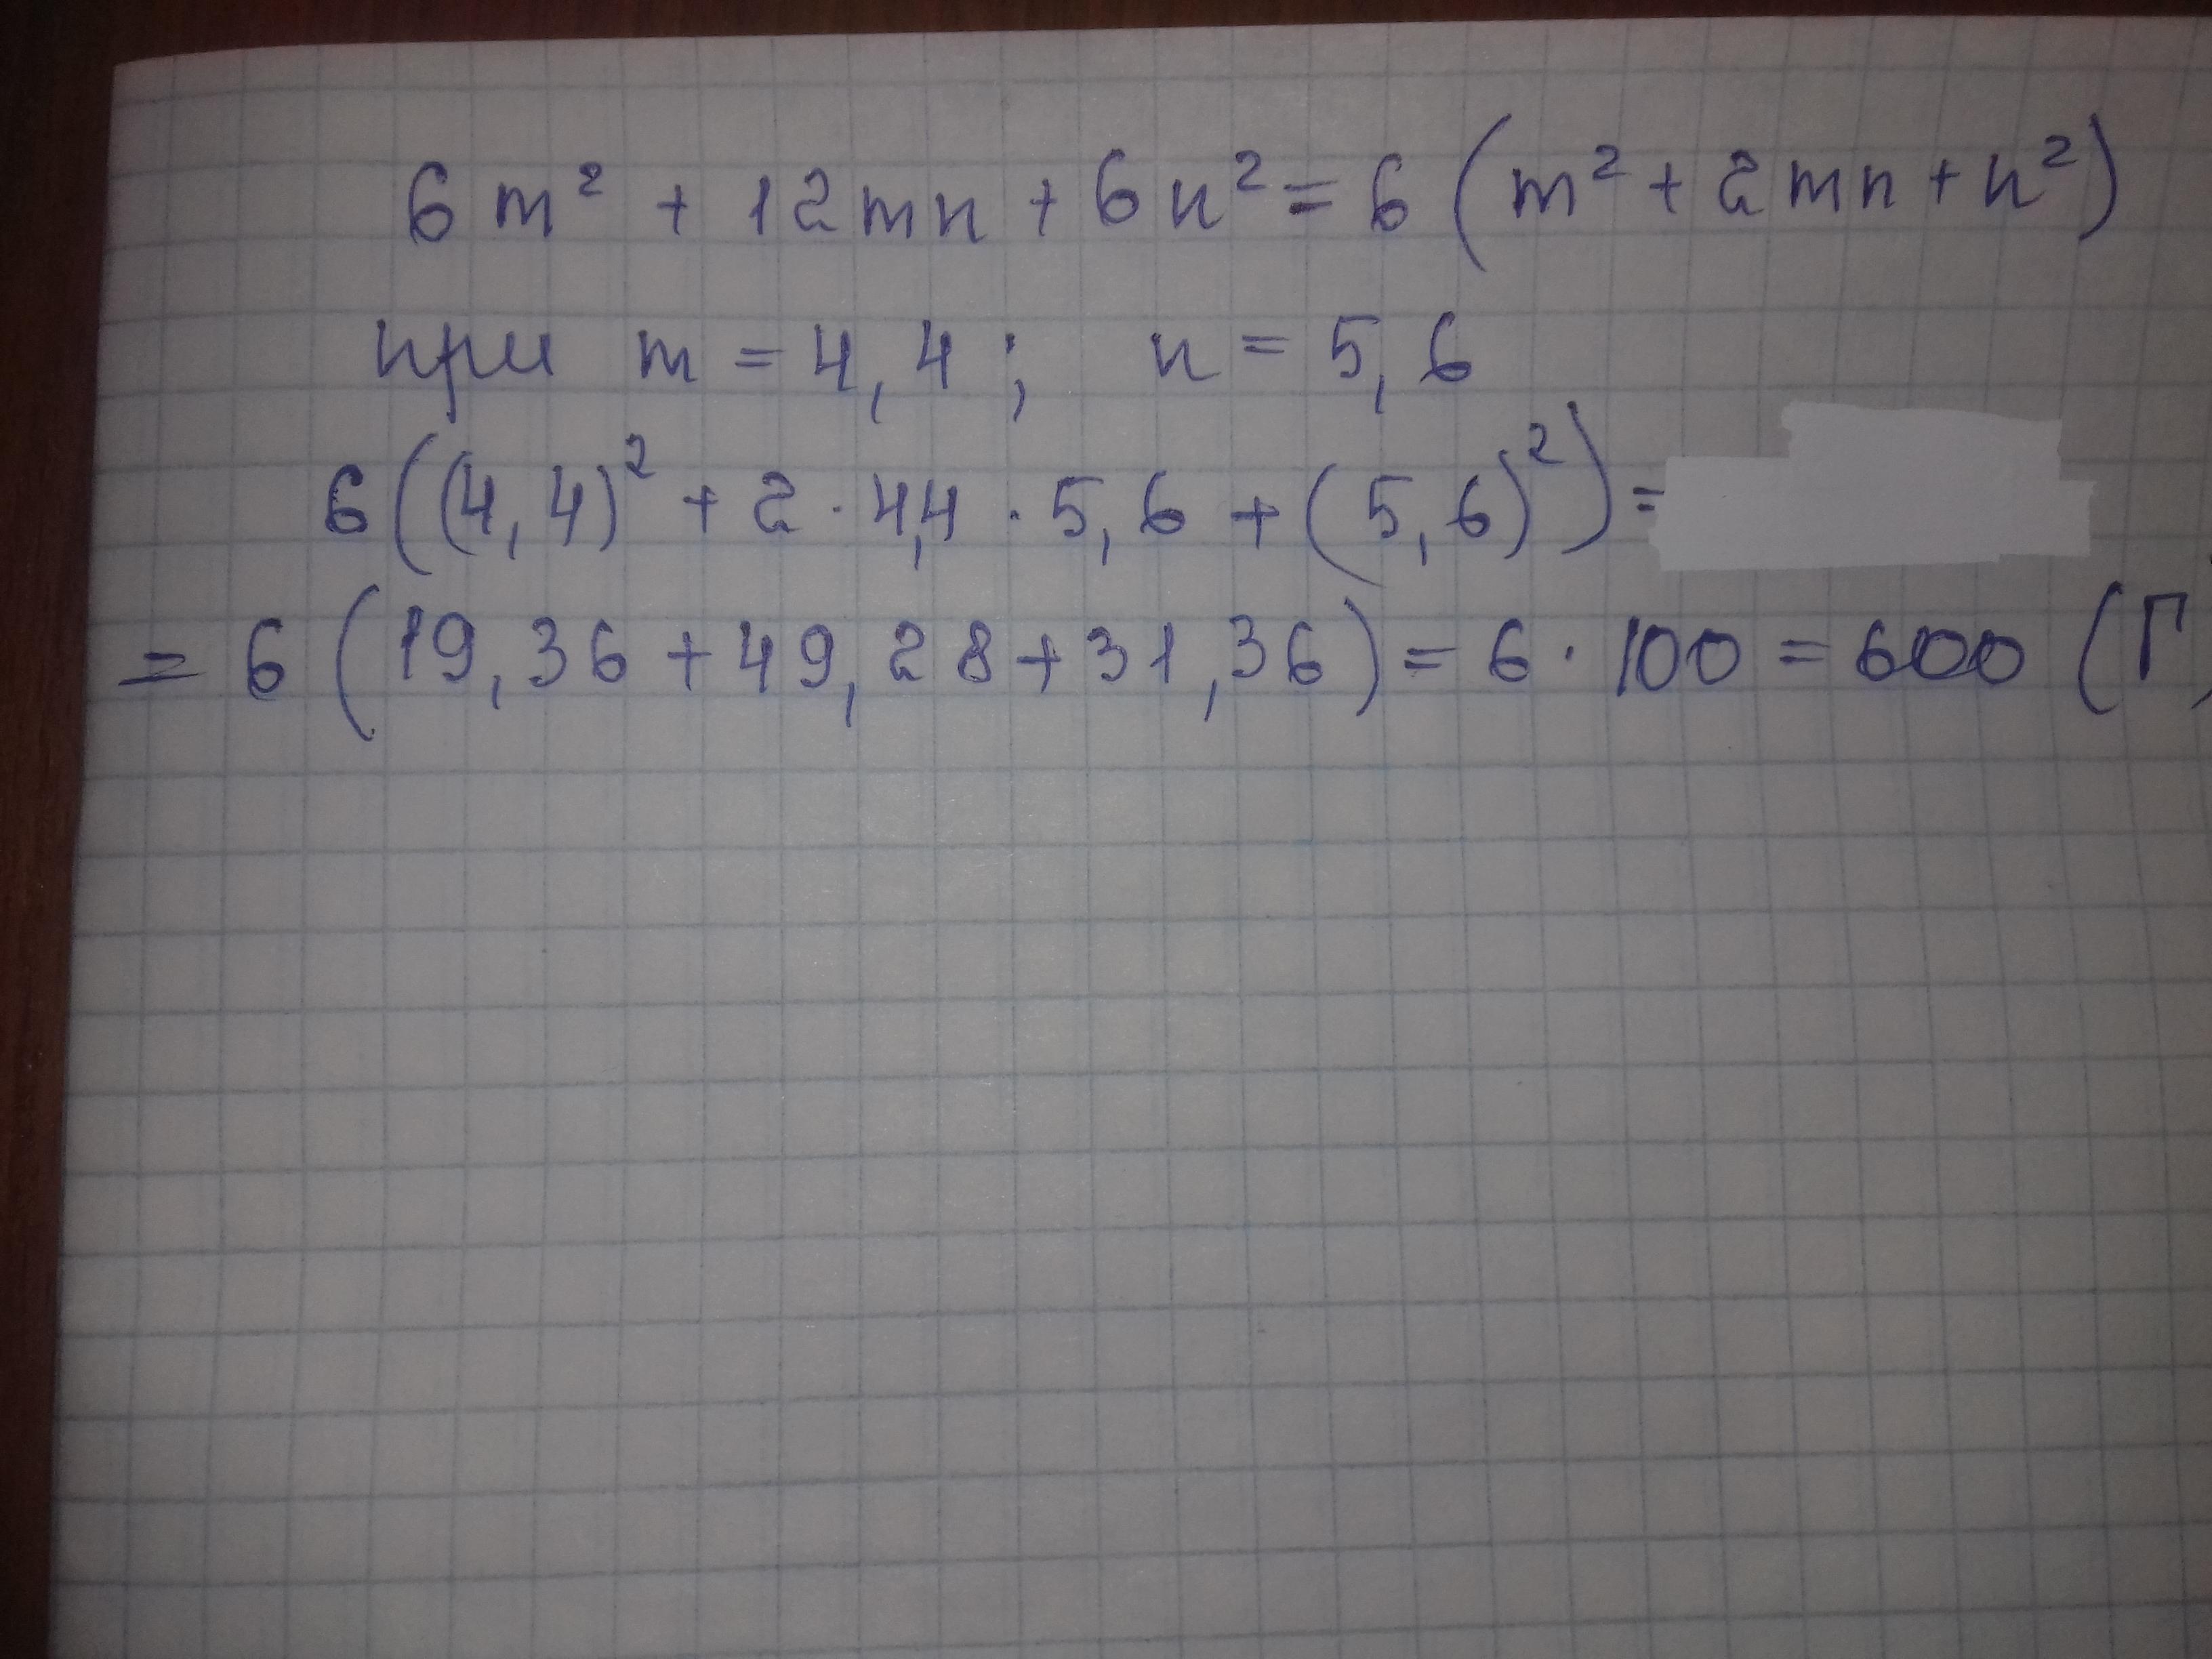 6m² + 12mn + 6n² = 6(m² + 2mn + n²)
при m = 4,4; n = 5,6
6((4,4)² + 2 · 4,4 · 5,6 + (5,6)²) =
= 6(19,36 + 49,28 + 31,36) = 6 · 100 = 600 (Г)